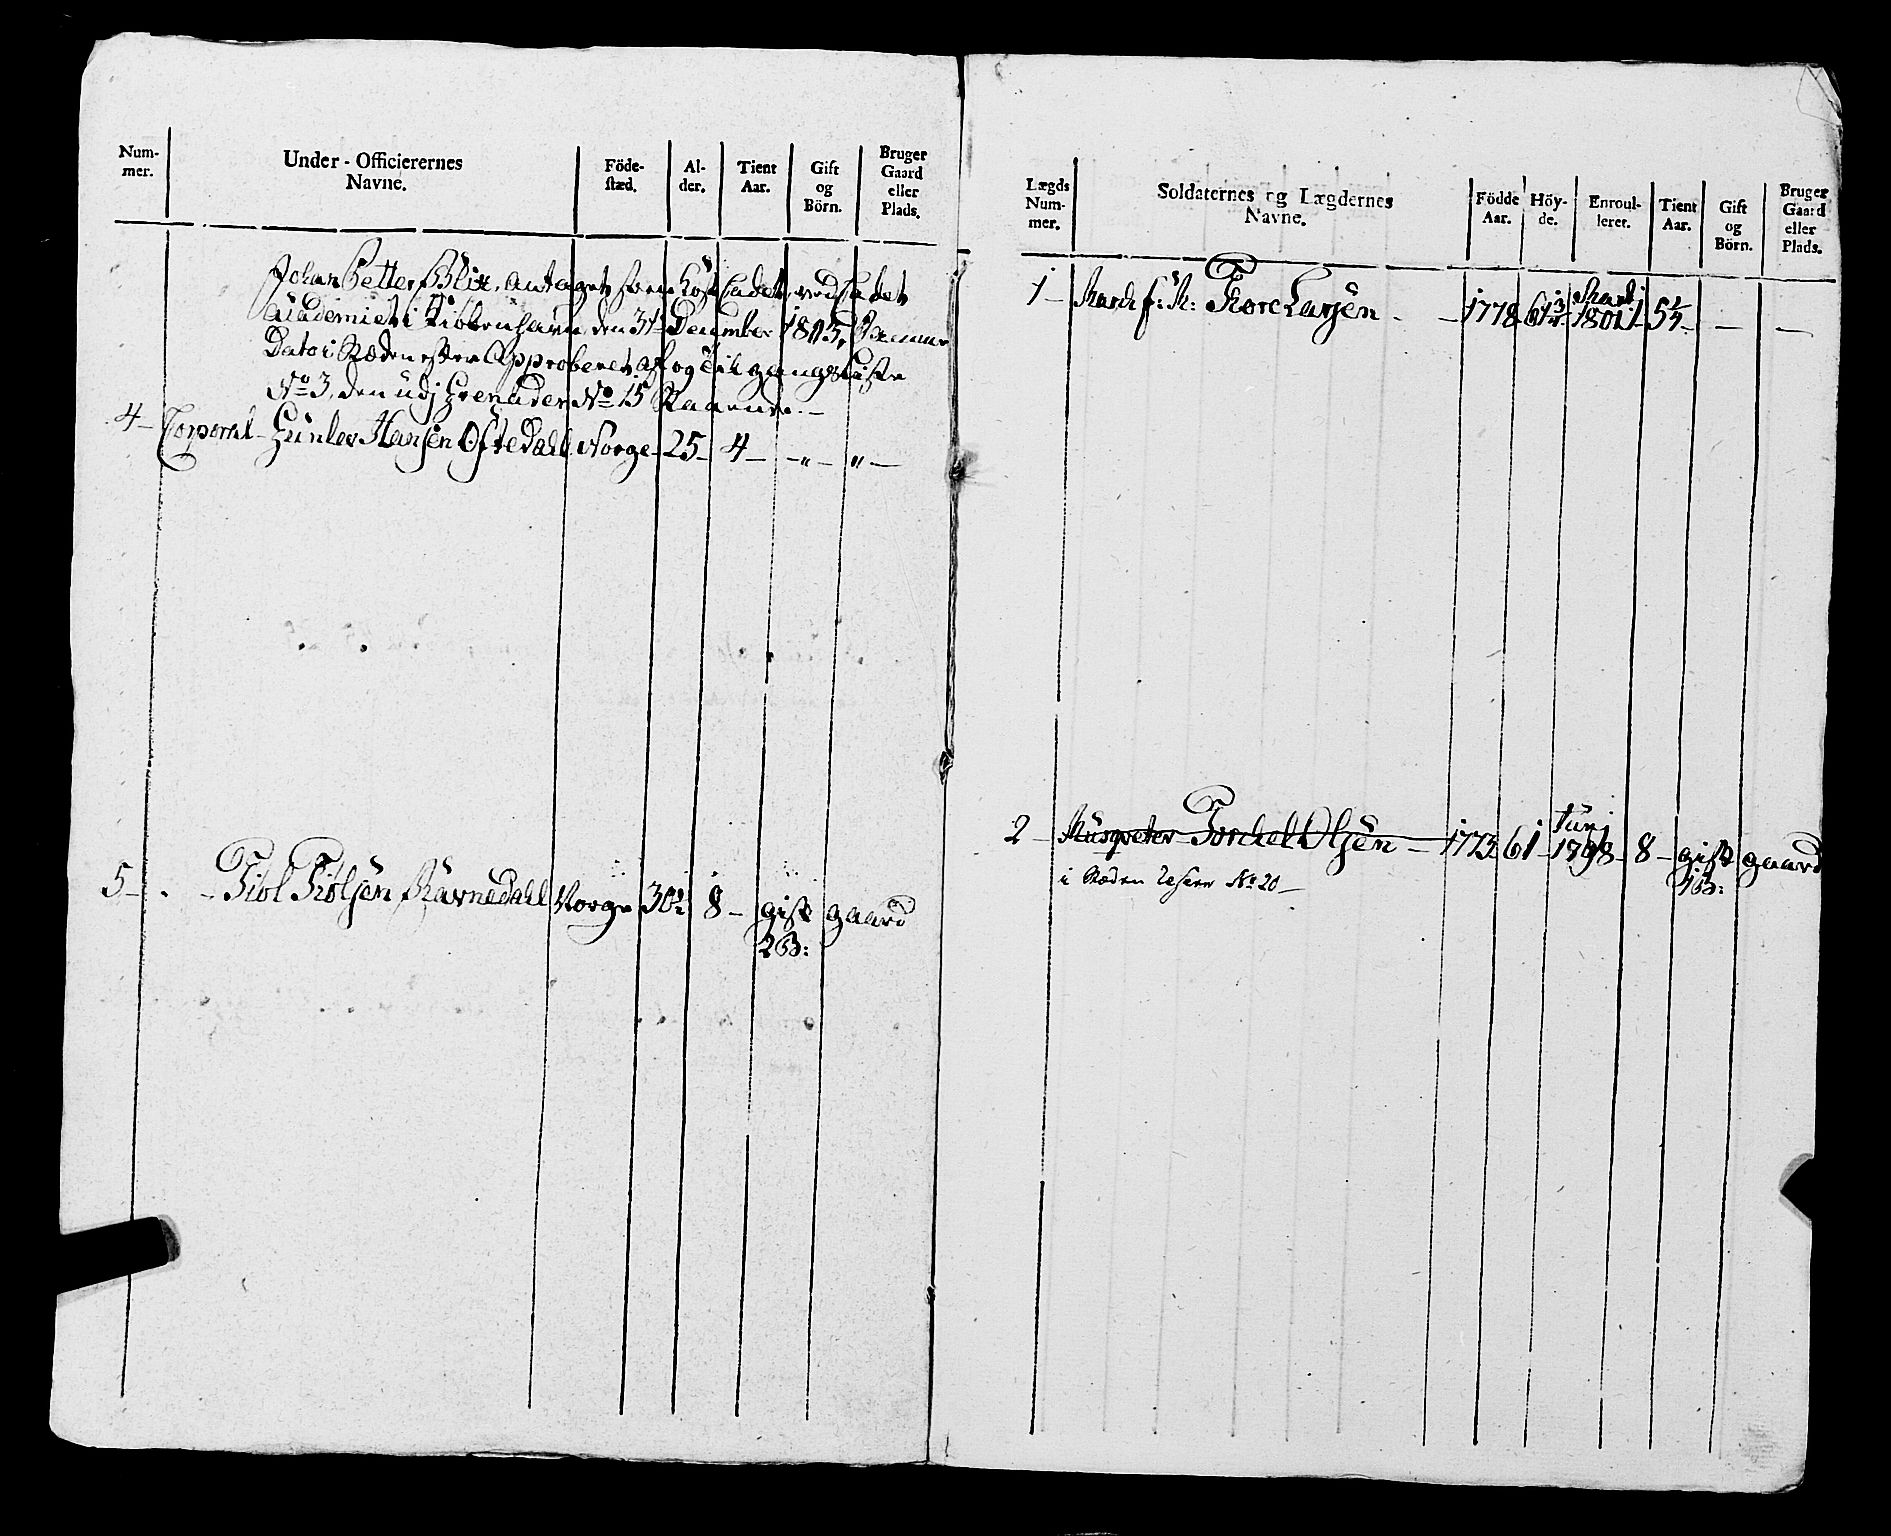 Num-
mer.
Under-Officierernes
Navne.
Föde-
stæd.
Al-
der.
Tient
Aar.
Gift
og
Börn.
Bruger
Gaard
eller
Plads.
Johan Petter Blix, antaget som Kost Cadet ved Cadet
Academiet i Kiöbenhavn den 31 December 1803,
Dato i Ræden efter Approberet af og Tilgangs Liste
No 3, den udj Grenader No 15
4 - Corporal - Gunder Hansen Oftedahl Norge - 25 - 4 - - „ - „ -
5 - - - Tiöl Tiölsen Ravnedahl Norge 30½ 8 - gift gaard
2 B:
Lægds
Num-
mer.
Soldaternes og Lægdernes
Navne.
Födde
Aar.
Höy-
de.
Enroul-
leret.
Tient
Aar.
Gift
og
Börn.
Bruger
Gaard
eller
Plads.
1 - Tore Larsen - - 1778 61 3/4 Martj 1801 - 5¼ - - -
2 - Musqveter Torchel Olsen - 1773 61 - Junj 1798 - 8 - gift gaard
1 B:
i Ræden No 20 -